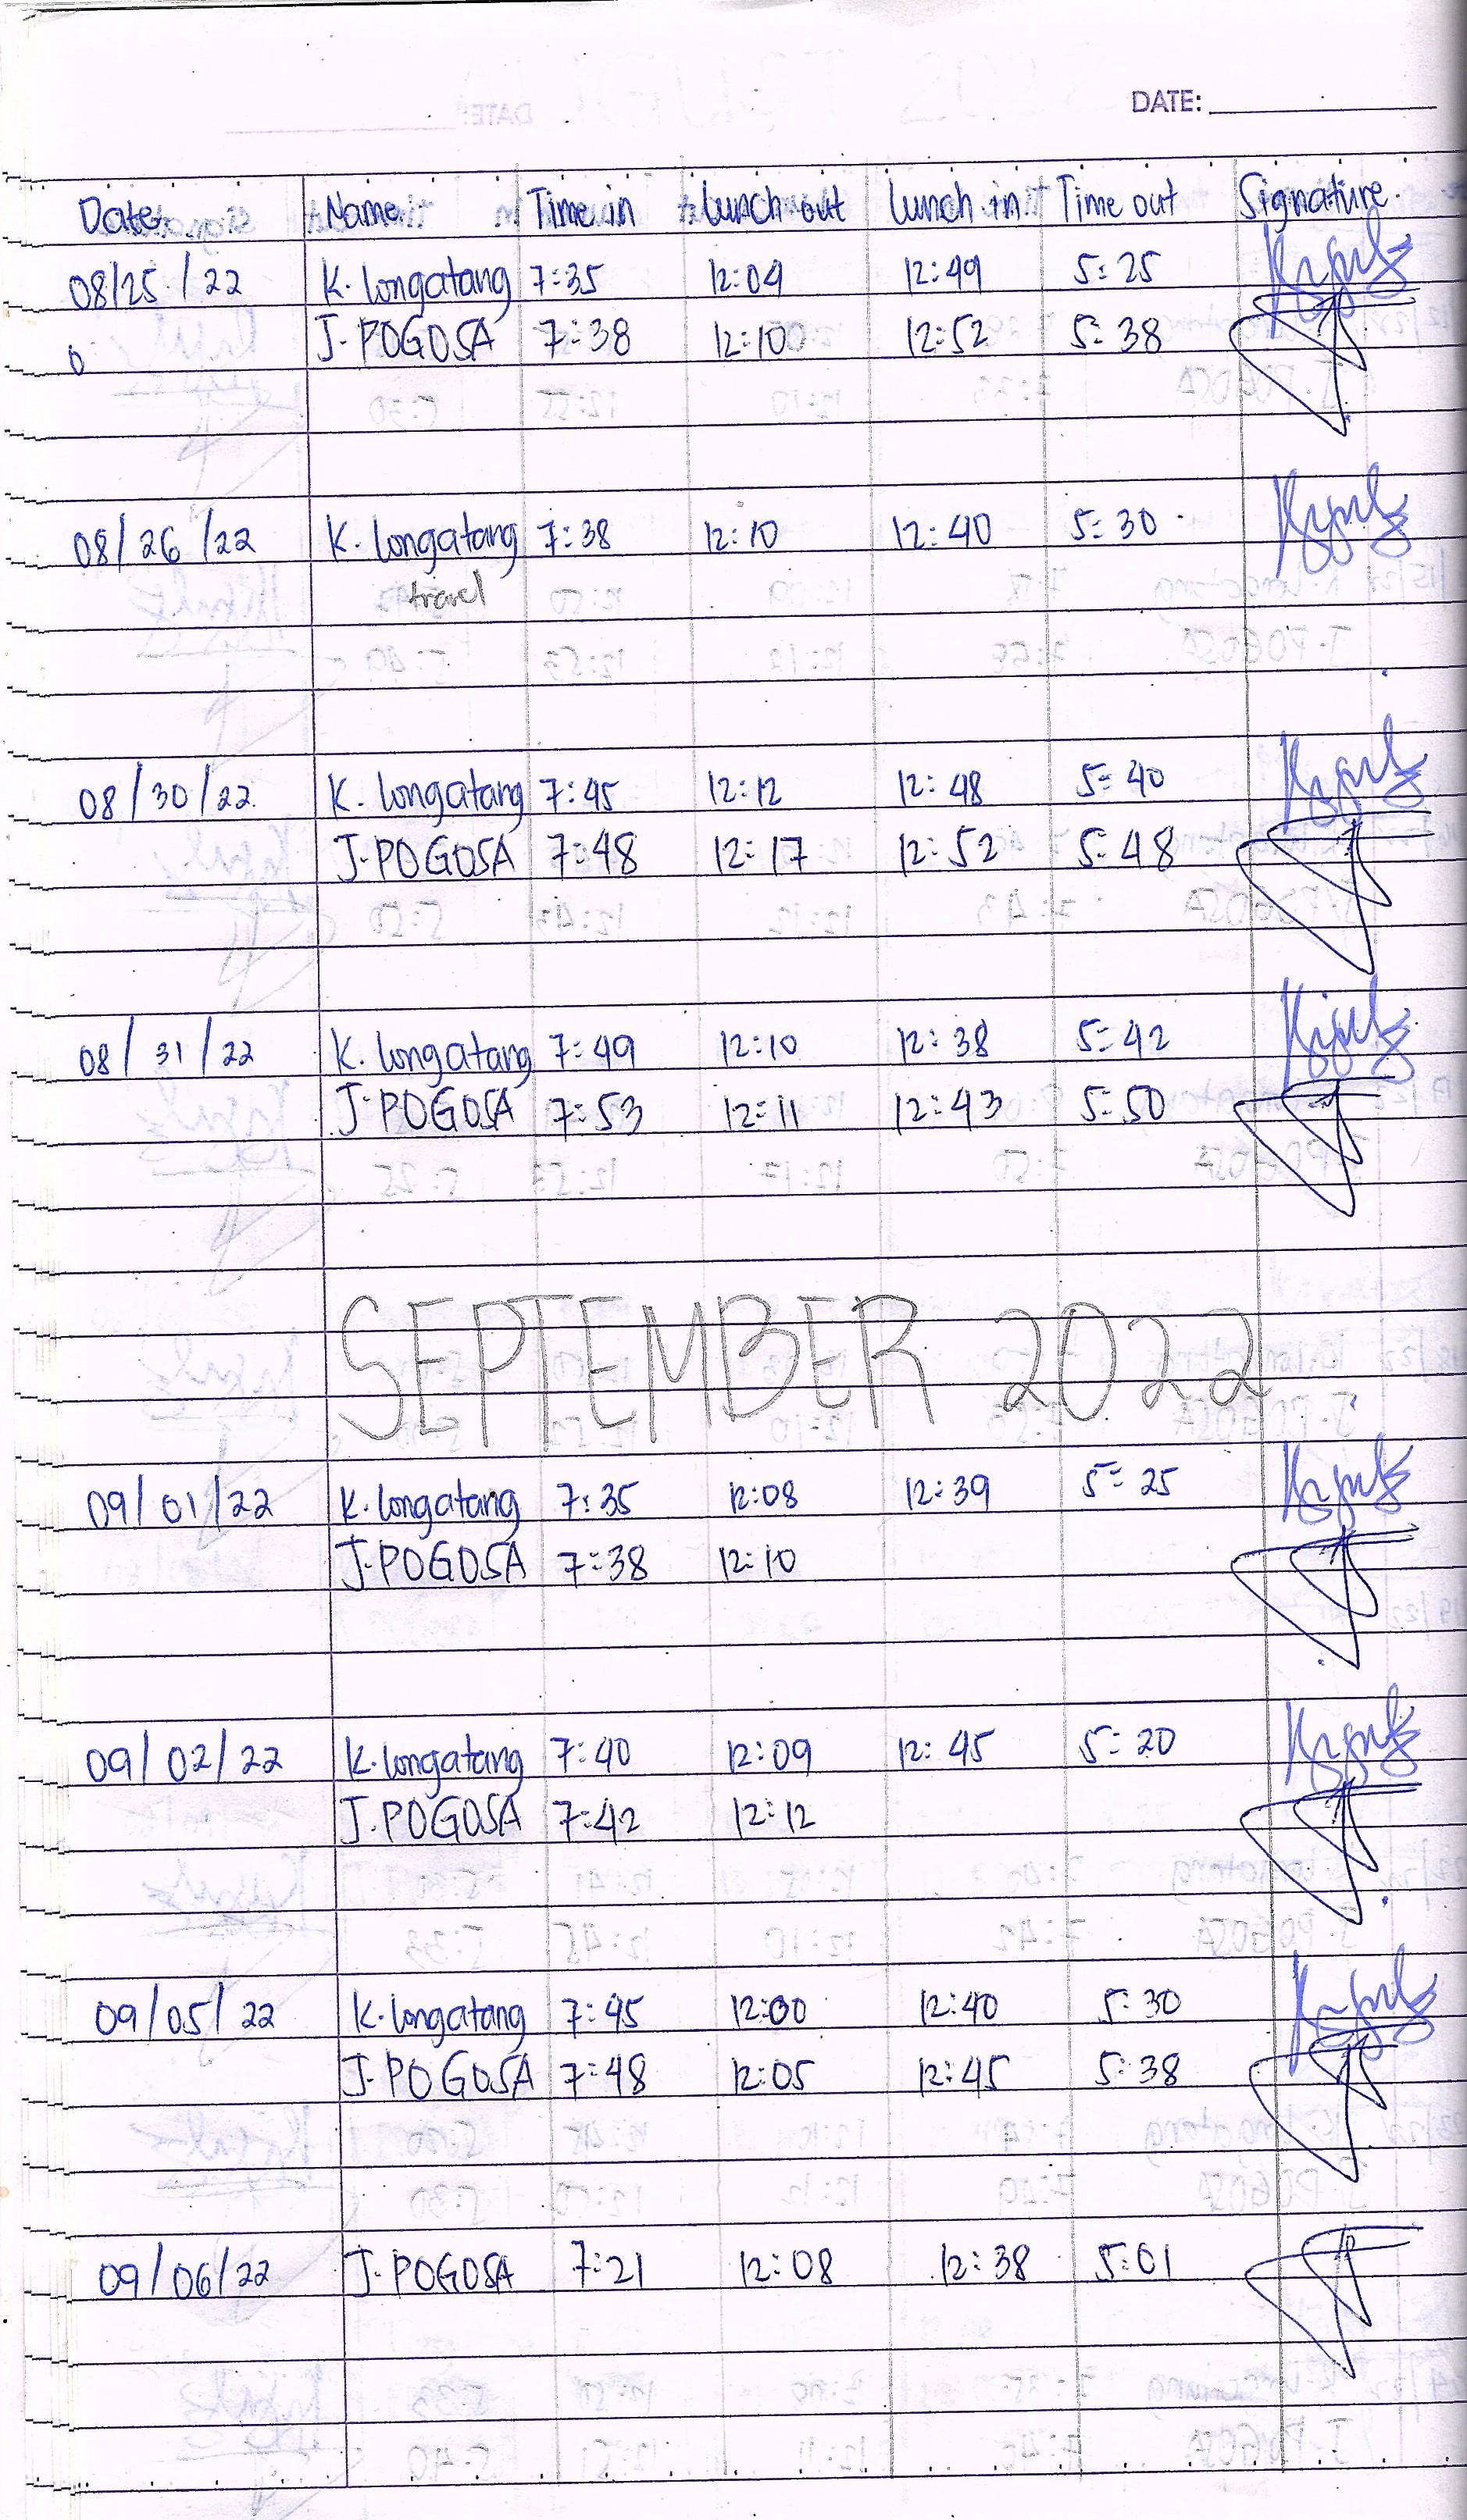 DATE:
Date Name Time in Lunch out Lunch in Time out Signature
08/25/22 K. Longatang 7:35 12:09 12:49 5:25
J. POGOSA 7:38 12:10 12:52 5:38
08/26/22 K. Longatang 7:38 12:10 12:40 5:30
travel
08/30/22 K. Longatang 7:45 12:12 12:48 5:40
J. POGOSA 7:48 12:17 12:52 5:48
08/31/22 K. Longatang 7:49 12:10 12:38 5:42
J. POGOSA 7:53 12:11 12:43 5:50
SEPTEMBER 2022
09/01/22 K. Longatang 7:35 12:08 12:39 5:25
J. POGOSA 7:38 12:10
09/02/22 K. Longatang 7:40 12:09 12:45 5:20
J. POGOSA 7:42 12:12
09/05/22 K. Longatang 7:45 12:00 12:40 5:30
J. POGOSA 7:48 12:05 12:45 5:38
09/06/22 J. POGOSA 7:21 12:08 12:38 5:01